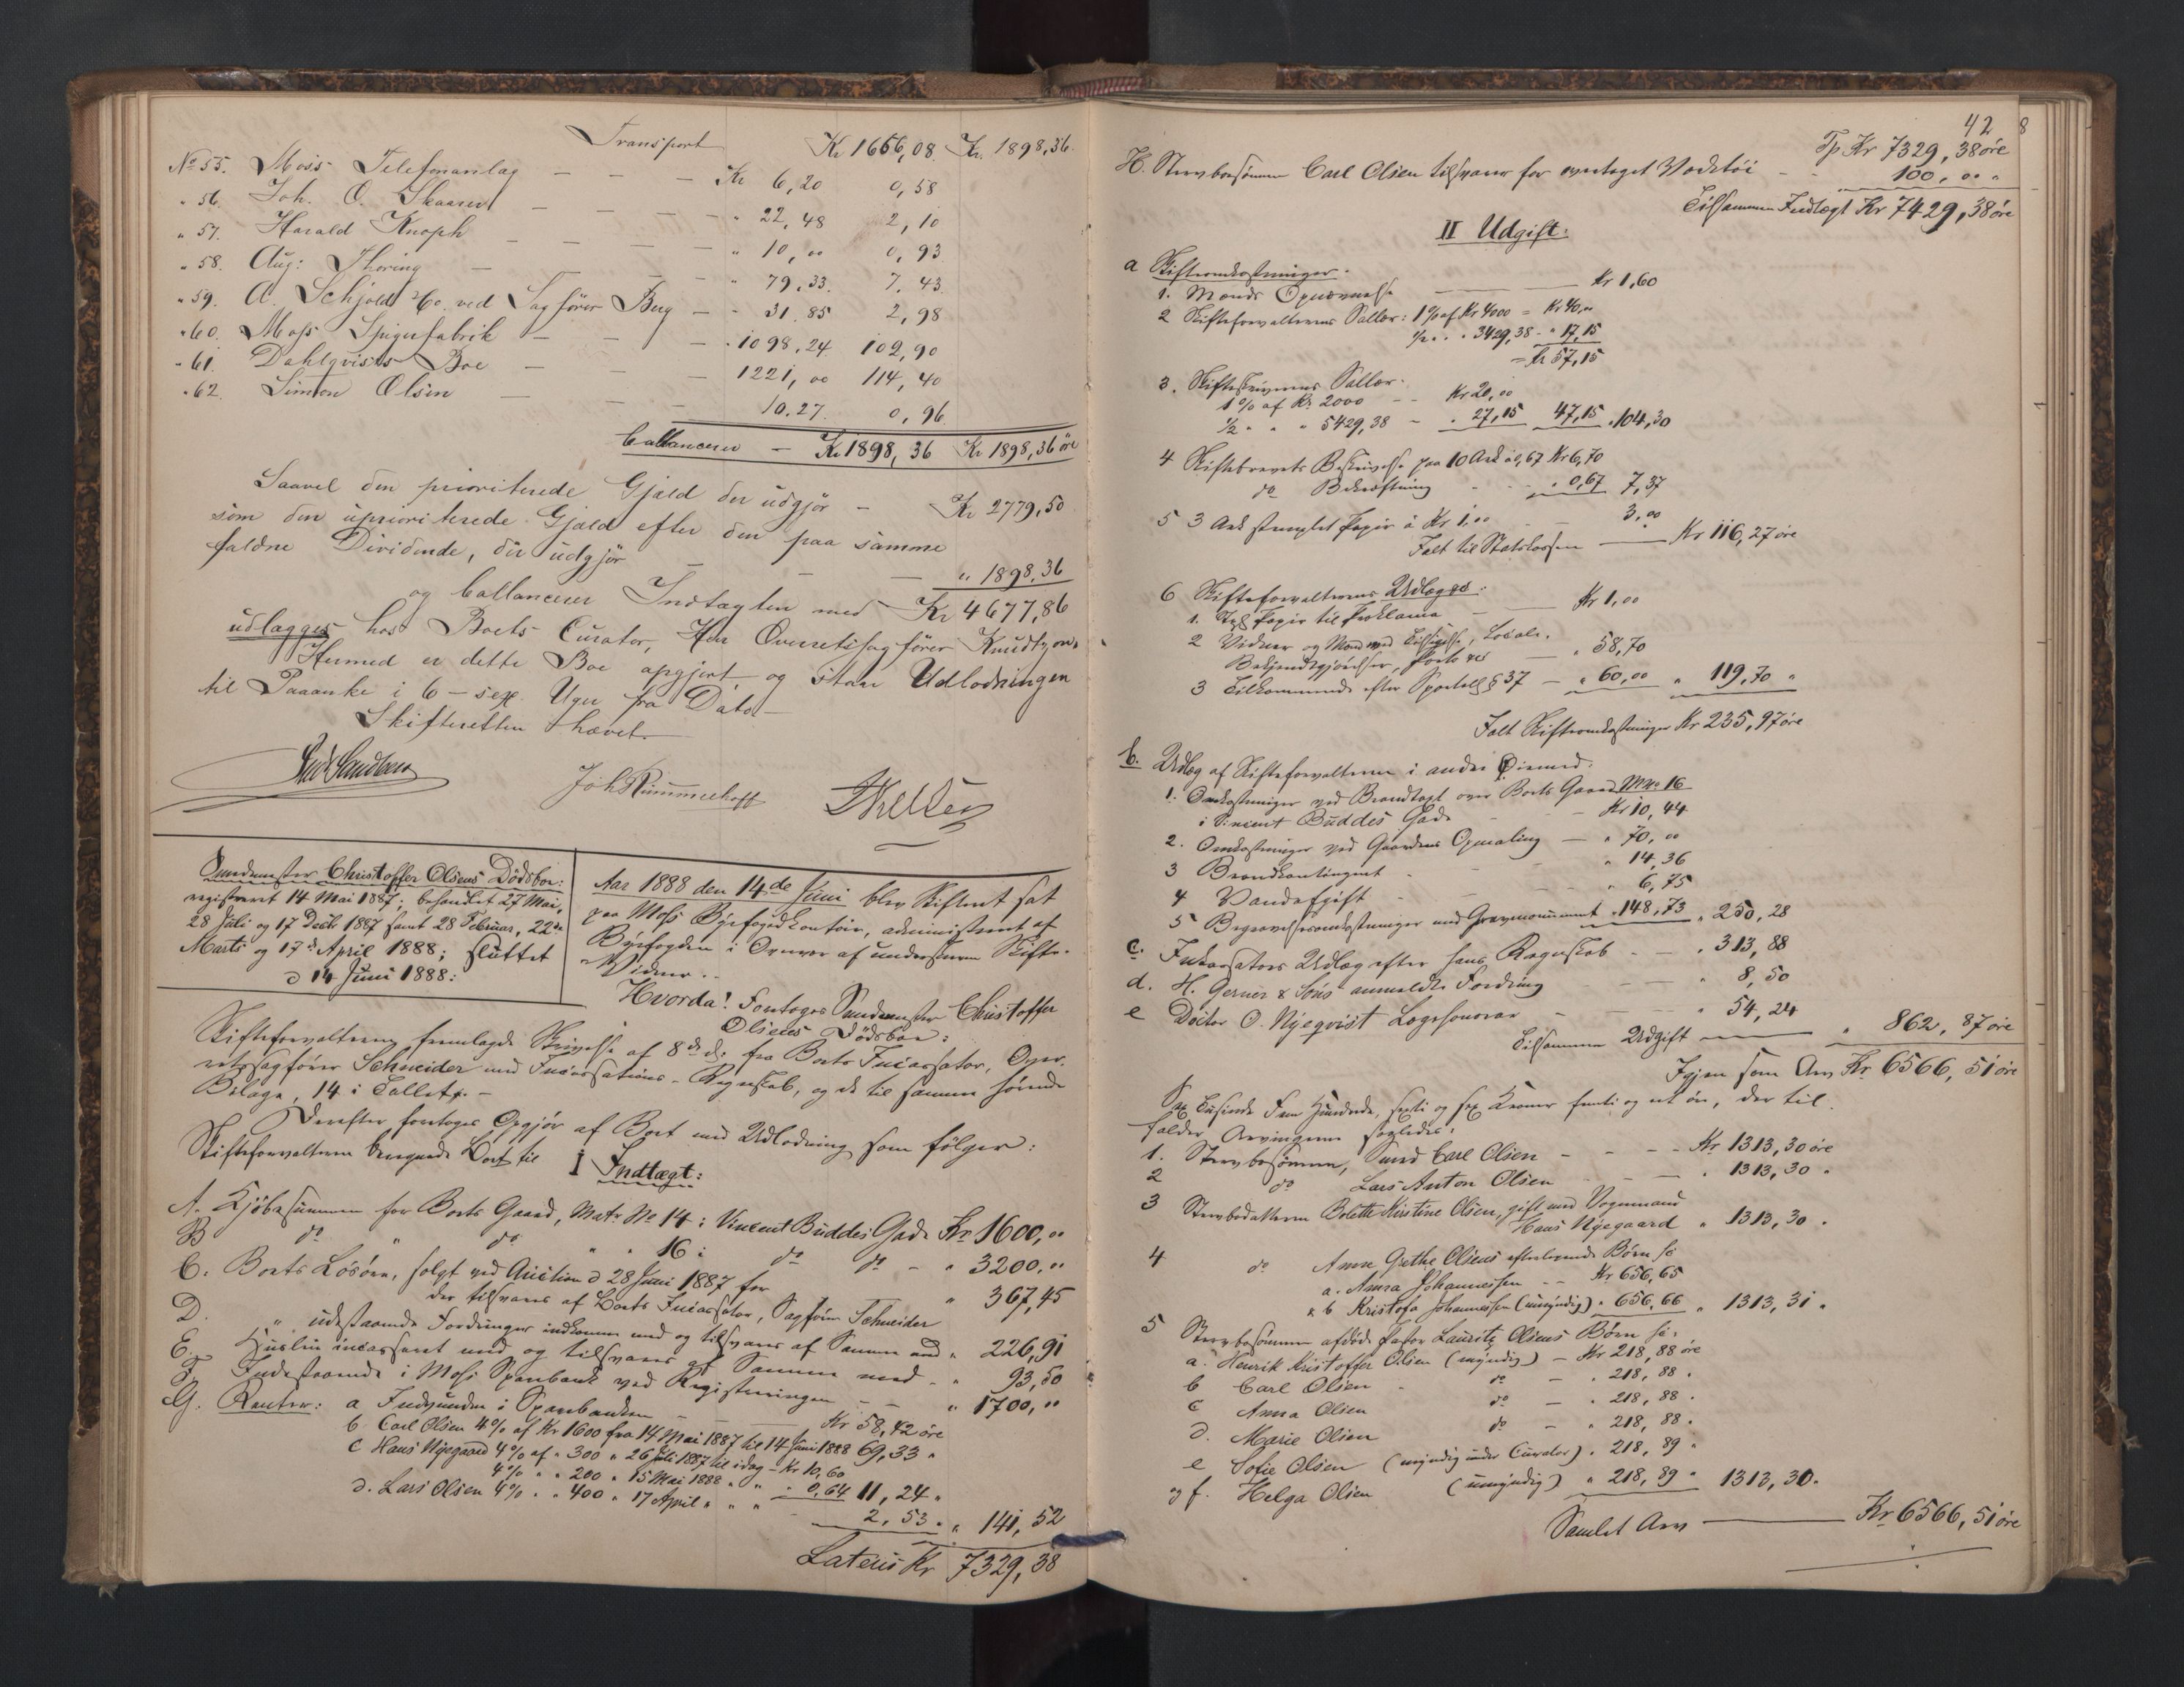 Transport Kr 1656,08. Kr. 1898,36.
No 55. Moss Telefonanlæg — — — Kr 6,20 0,58
" 56. Joh. O. Skaaret — — — " 22,48 2,10
" 57. Harald Knoph — — — " 10,00 0,93
" 58. Aug: Thoring — — — " 79,33. 7,43
" 59. A. Schjold & Co. ved Sagfører Bug — " 31.85 2,98
" 60. Moss Spigerfabrik — — — " 1098,24 102,90
" 61. Dahlqvists Boe — — — 1221,00 114,40
" 62. Simon Olsen — — — 10.27. 0,96
ballancerer — Kr 1898,36 Kr 1898,36 øre
Saavel den prioriterede Gjæld der udgjør — Kr 2779,50
som den uprioriterede Gjæld efter den paa samme
faldne Dividende, der udgjør — — — " 1898,36
og ballancerer Indtægten med Kr 4677,86
udlægges hos Boets Curator, Hr. Overretssagfører Knudtzon.
Hermed er dette Boe opgjort og staar Udlodningen
til Paaanke i 6 – sex Uger fra Dato.
Skifteretten hævet.
Joh Rummelhoff
Sundmester Christoffer Olsens Dødsboe:
registreret 14 Mai 1887; behandlet 27 Mai,
28 Juli og 17 Decbr 1887 samt 28 Februar, 22de
Marts og 17de April 1888; sluttet
d 14 Juni 1888:
Aar 1888 den 14de Juni blev Skifteret sat
paa Moss Byfogedkontoir, administreret af
Byfogden i Overvær af undertegnede Skifte-
Vidner..
Hvorda! Foretoges Sundmester Christoffer
Olsens Dødsboe:
Skifteforvalteren fremlagde Skrivelse af 8de ds. fra Boets Incassator, Over-
retssagfører Schneider med Incassations-Regnskab, og de til samme hørende
Bilage, 14 i Tallet. —
Derefter foretoges Opgjør af Boet med Udlodning som følger:
Skifteforvalteren beregnede Boet til
I Indtægt:
A. Kjøbesummen for Boets Gaard, Matr. No 14 i Vincent Buddes Gade Kr 1600,00
B do " do " " 16 i do do — " 3200,"
C. Boets Løsøre, solgt ved Auction d 28 Juni 1887 for
der tilsvares af Boets Incassator, Sagfører Schneider " 367,45
D. " udestaaende Fordringer indkomne med og tilsvares af Samme med " 226,91
E. " Husleie incasseret med og tilsvares af Samme med — " 93,50
F. Indestaaende i Moss Sparebank ved Registreringen — — " 1700,"
G. Renter: a Indvundne i Sparebanken — — Kr 58,42 øre
b Carl Olsen 4% af Kr 1600 fra 14 Mai 1887 til 14 Juni 1888 69,33 "
c Hans Nyegaard 4% af " 300 " 26 Juli 1887 til idag — Kr 10,60
4% " " 200 " 15 Mai 1888 " " " 0,64 11,24 "
d. Lars Olsen 4% " " 400 " 17 April " " " 2,53 " " 141,52
Lateris Kr 7329,38
42 8
Tp Kr 7329,38 øre
H. Stervbosønnen Carl Olsen tilsvarer for overtaget Vadetøi — 100,00 "
Tilsammen Indtægt Kr 7429,38 øre
II Udgift:
a Skifteomkostninger.
1. Mænds Opnævnelse — Kr 1,60
2 Skifteforvalterens Sallær: 1% af Kr 4000 = Kr 40,"
1/2 " " " 3429,38 – " 17,15
= Kr 57,15
3. Skifteskriverens Sallær.
1% af Kr. 2000 — Kr 20,00
1/2 " " " 5429,38 — " 27,15 47,15 " 104,30
4 Skiftebrevets Beskrivelse paa 10 Ark à 0,67 Kr 6,70
do Bekræftning — " 0,67 7,37
5 3 Ark stemplet Papir à Kr 1,00 — 3,00
Ialt til Statskassen — Kr 116,27 øre
6 Skifteforvalterens Udlæg:
1. Stpl Papir til Proklama — Kr 1,00
2 Vidner og Mænd ved Tilsigelse, Localer,
Bekjendtgjørelser, Porto &c — " 58,70
3 Tilkommende efter Sportell § 37 — " 60,00 " 119,70 "
Ialt Skifteomkostninger Kr 235,97 øre
b. Udlæg af Skifteforvalteren i andet Øiemed:
1. Omkostninger ved Brandtaxt over Boets Gaard M.No 16
i Vincent Buddes Gade — Kr 10,44
2. Omkostninger ved Gaardens Opmaling — " 70,00
3 Brandkontingent — " 14,36
4 Vandafgift — " 6,75
5 Begravelsesomkostninger med Gravmonument " 148,73 " 250,28
c. Inkassators Udlæg efter hans Regnskab — " 313,88
d. H. Gerner & Søns anmeldte Fordring — " 8,50
e Doctor O. Nyeqvist Lægehonorar — " 54,24
Tilsammen Udgift — " 862,87 øre
Igjen som Arv Kr. 6566,51 øre
Sex Tusinde Fem Hundrede, sexti og sex Kroner femti og et øre, der til-
falder Arvingerne saaledes:
1. Stervbosønnen, Smed Carl Olsen — — Kr. 1313,30 øre
2 do Lars Anton Olsen — " 1313,30 "
3 Stervbodatteren Bolette Kirstine Olsen, gift med Vognmand
Hans Nyegaard " 1313,30 "
4 do Anne Grethe Olsens efterlevende Børn fe
a. Anna Johannessen — Kr 656,65
& b Kristofa Johannessen (umyndig) " 656,66 " 1313,31 "
5 Stervbosønnen afdøde Pastor Lauritz Olsens Børn fe:
a. Henrik Kristoffer Olsen (myndig) — Kr 218,88 øre
b Carl Olsen do — " 218,88 "
c Anna Olsen do — " 218,88 "
d. Marie Olsen do — " 218,88 "
e Sofie Olsen (myndig under Curator) " 218,89 "
og f. Helga Olsen (umyndig) " 218,89 " 1313,30 "
Samlet Arv — Kr 6566,51 øre